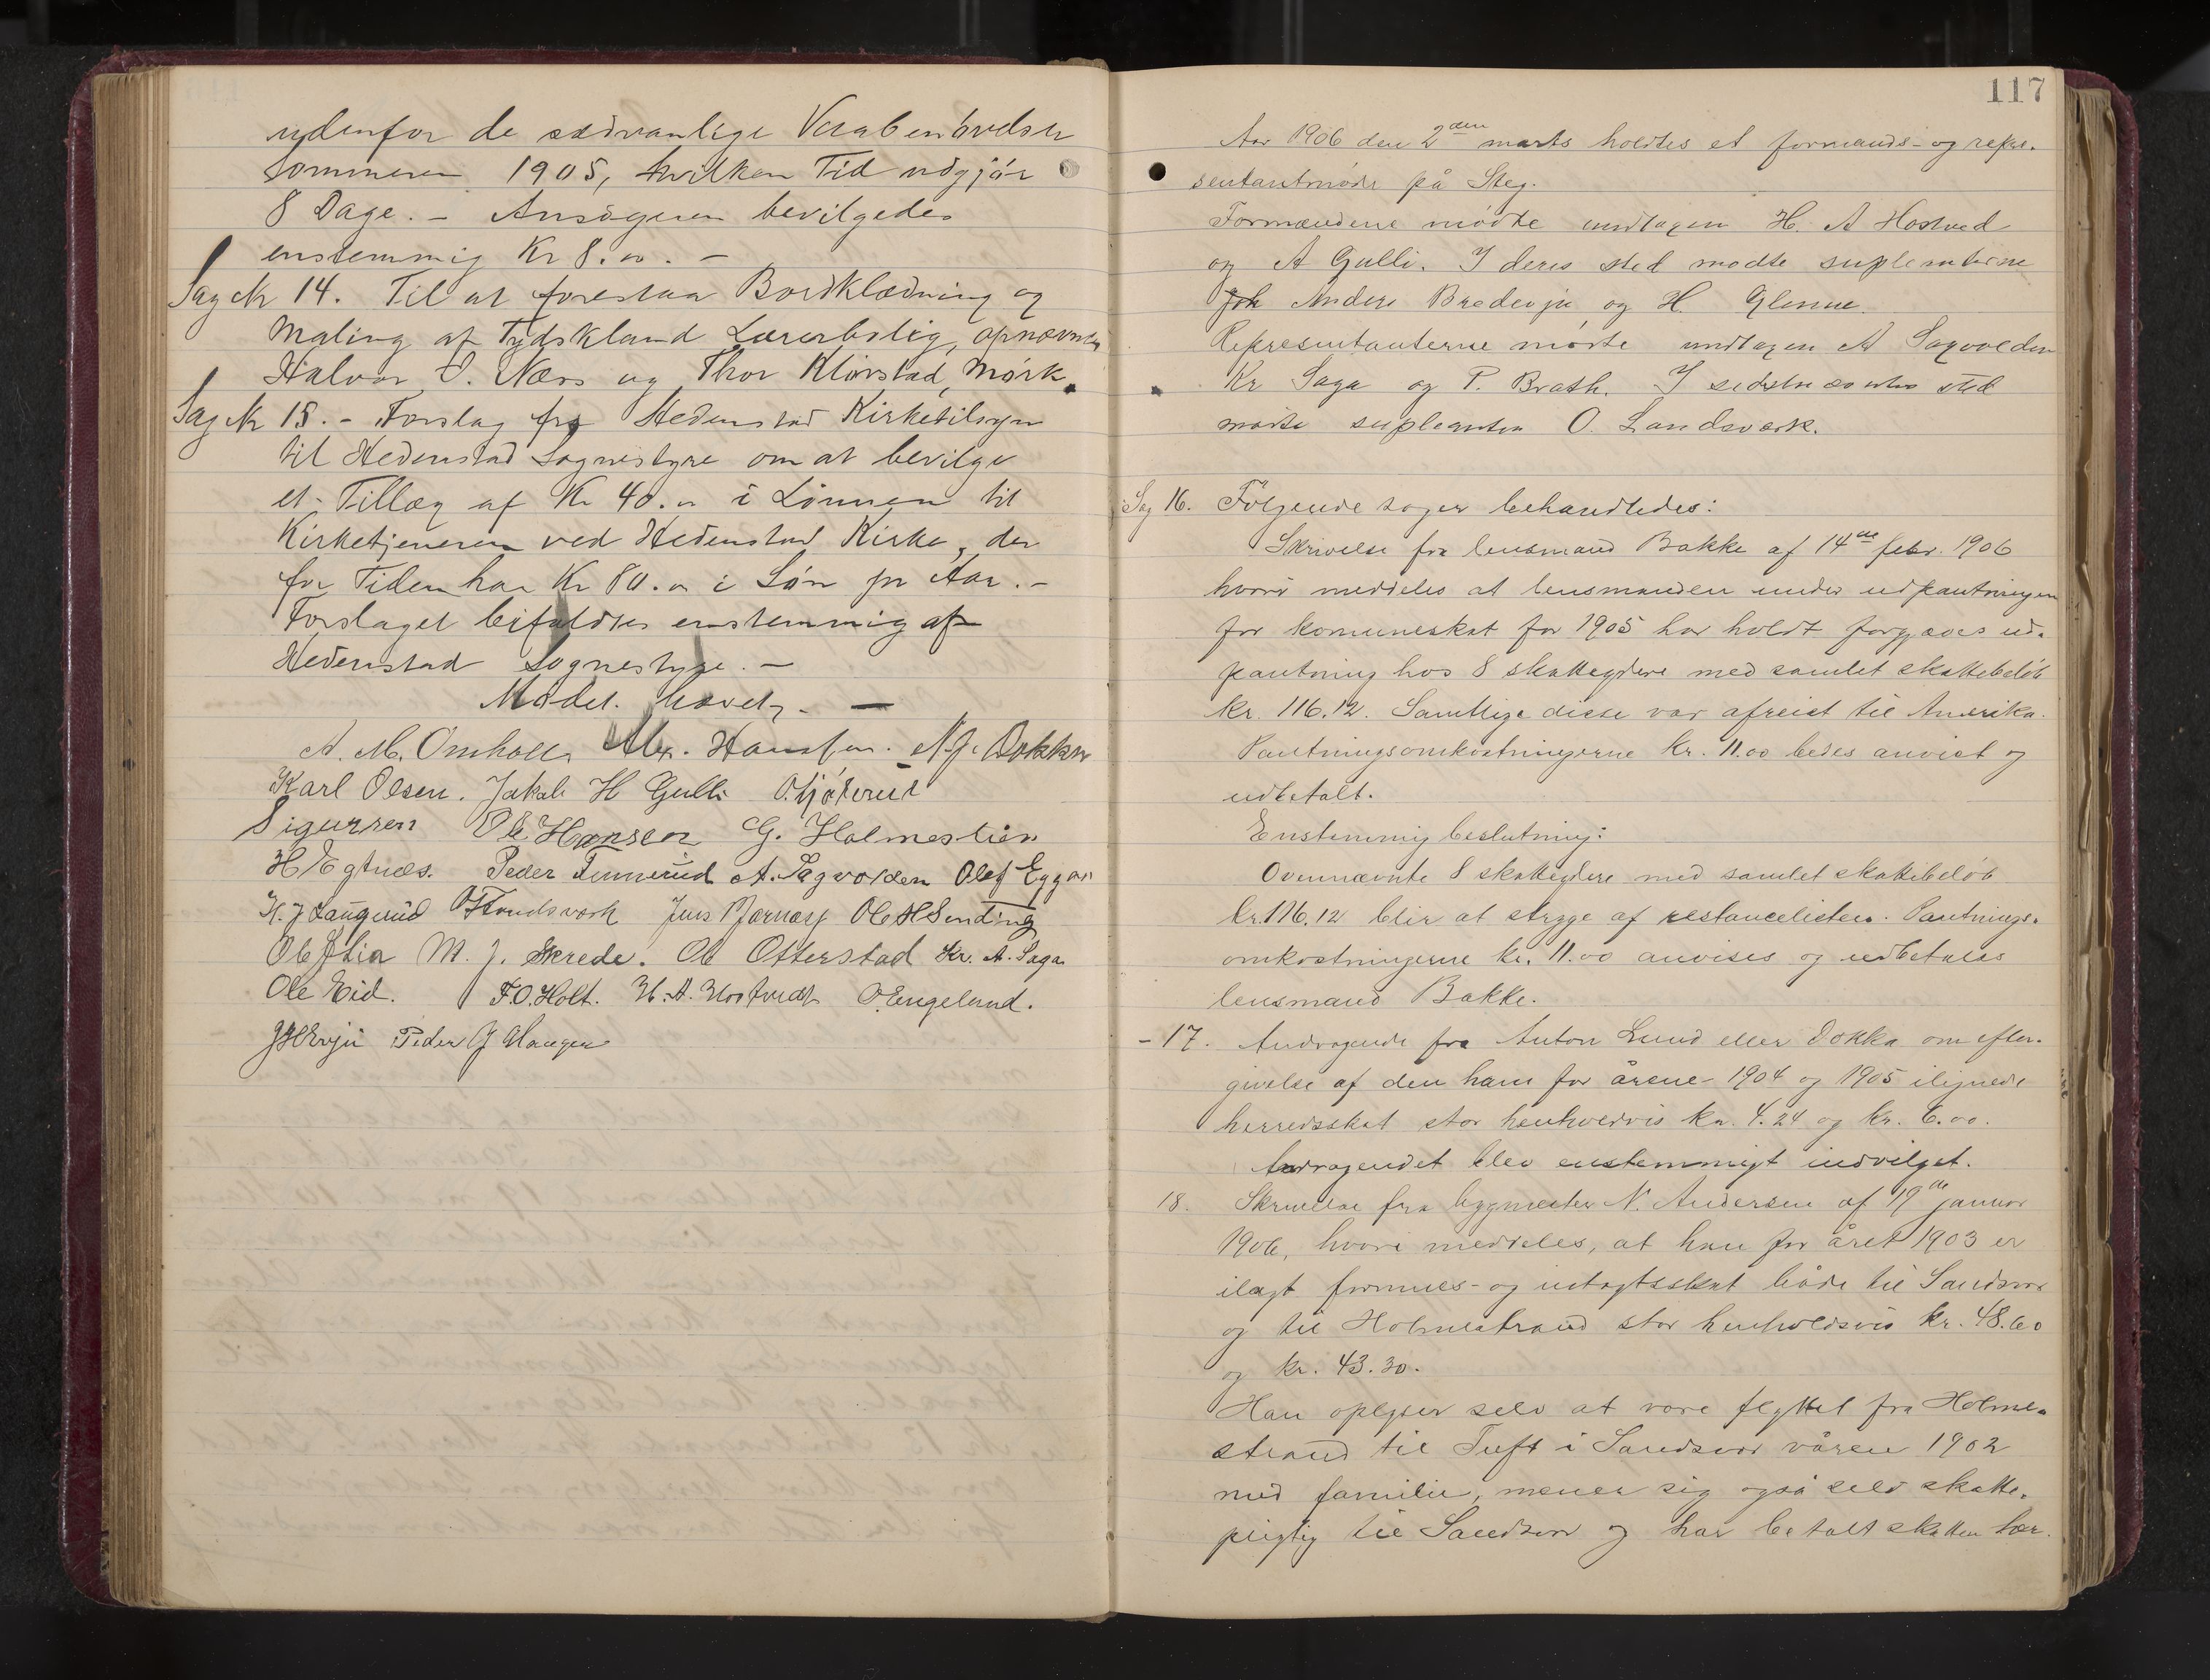 udenfor de sædvanlige Vaabenøvelser
Sommeren 1905, hvilken Tid udgjør
8 Dage. – Ansøgeren bevilgedes
enstemmig Kr 8.00. –
Sag N 14. Til at forestaa Bordklædning og
Maling af Tydskland Lærerbolig, opnævntes
Halvor O. Næss og Thor Klørstad, Mørk.
Sag N 15. – Forslag fra Hedenstad Kirketilsyn
til Hedenstad Sognestyre om at bevilge
et Tillæg af Kr 40.00 i Lønnen til
Kirketjeneren ved Hedenstad Kirke, der
for Tiden har Kr 80.00 i Løn pr Aar. –
Forslaget bifaldtes enstemmig af
Hedenstad Sognestyre. –
Mødet hævet. –
A. M. Omholt. Alex. Hansen. N. J. Dokken
Karl Olsen. Jakob H Gulli
Sigursen Ole Hansen G. Holmestien
H Egtnes. Peder Tennerud A. Sagvolden Olef Eggar
H. J Laugerud O Landsverk Jens Bjørnass Ole H Senting
Ole J Lia M. J. Skrede. Ole Otterstad Kr. A. Saga
Ole Eid. F. O. Holt. H. A. Hostvedt O. Engelund.
Peder J Haugen
117
Aar 1906 den 2den marts holdtes et formands- og repre-
sentantmøde på Steg.
Formændene mødte undtagen H. A Hostved
og A Gulli. I deres sted mødte suplenterne
Anders Bradenju og H. Glenne.
Representanterne mødte undtagen A Sagvolden
Kr Saga og P. Brath. I sidstnævntes sted
mødte supleanten O. Landsverk.
Sag 16. Følgende sager behandledes:
Skrivelse fra lensmand Bakke af 14de febr. 1906
hvori meddeles at lensmanden under udpantningen
for komuneskat for 1905 har holdt forgjæves ud-
pantning hos 8 skatteydere med samlet skattebeløb
kr. 116.12. Samtlige disse var afreist til Amerika.
Pantningsomkostningerne kr. 11.00 bedes anvist og
udbetalt.
Enstemmig beslutning:
Ovennævnte 8 skatteydere med samlet skattebeløb
kr. 116.12 blir at stryge af restancelisten. Pantnings-
omkostningerne kr. 11.00 anvises og udbetales
lensmand Bakke.
– 17. Andragende fra Anton Lund eller Dokka om efter-
givelse af den ham for årene 1904 og 1905 ilignede
herredsskat stor henholdvis kr. 4.24 og kr. 6.00.
Andragendet blev enstemmigt indvilget.
18. Skrivelse fra bygmester N. Andersen af 19de januar
1906, hvori meddeles, at han for året 1903 er
ilagt formues- og indtægtsskat både til Sandsvær
og til Holmestrand stor henholdsvis kr. 48.60
og kr. 43.30.
Han oplyser selv at være flyttet fra Holme-
strand til Tuft i Sandsvær våren 1902
med familie, mener sig også selv skatte-
pligtig til Sandsvær og har betalt skatten her.